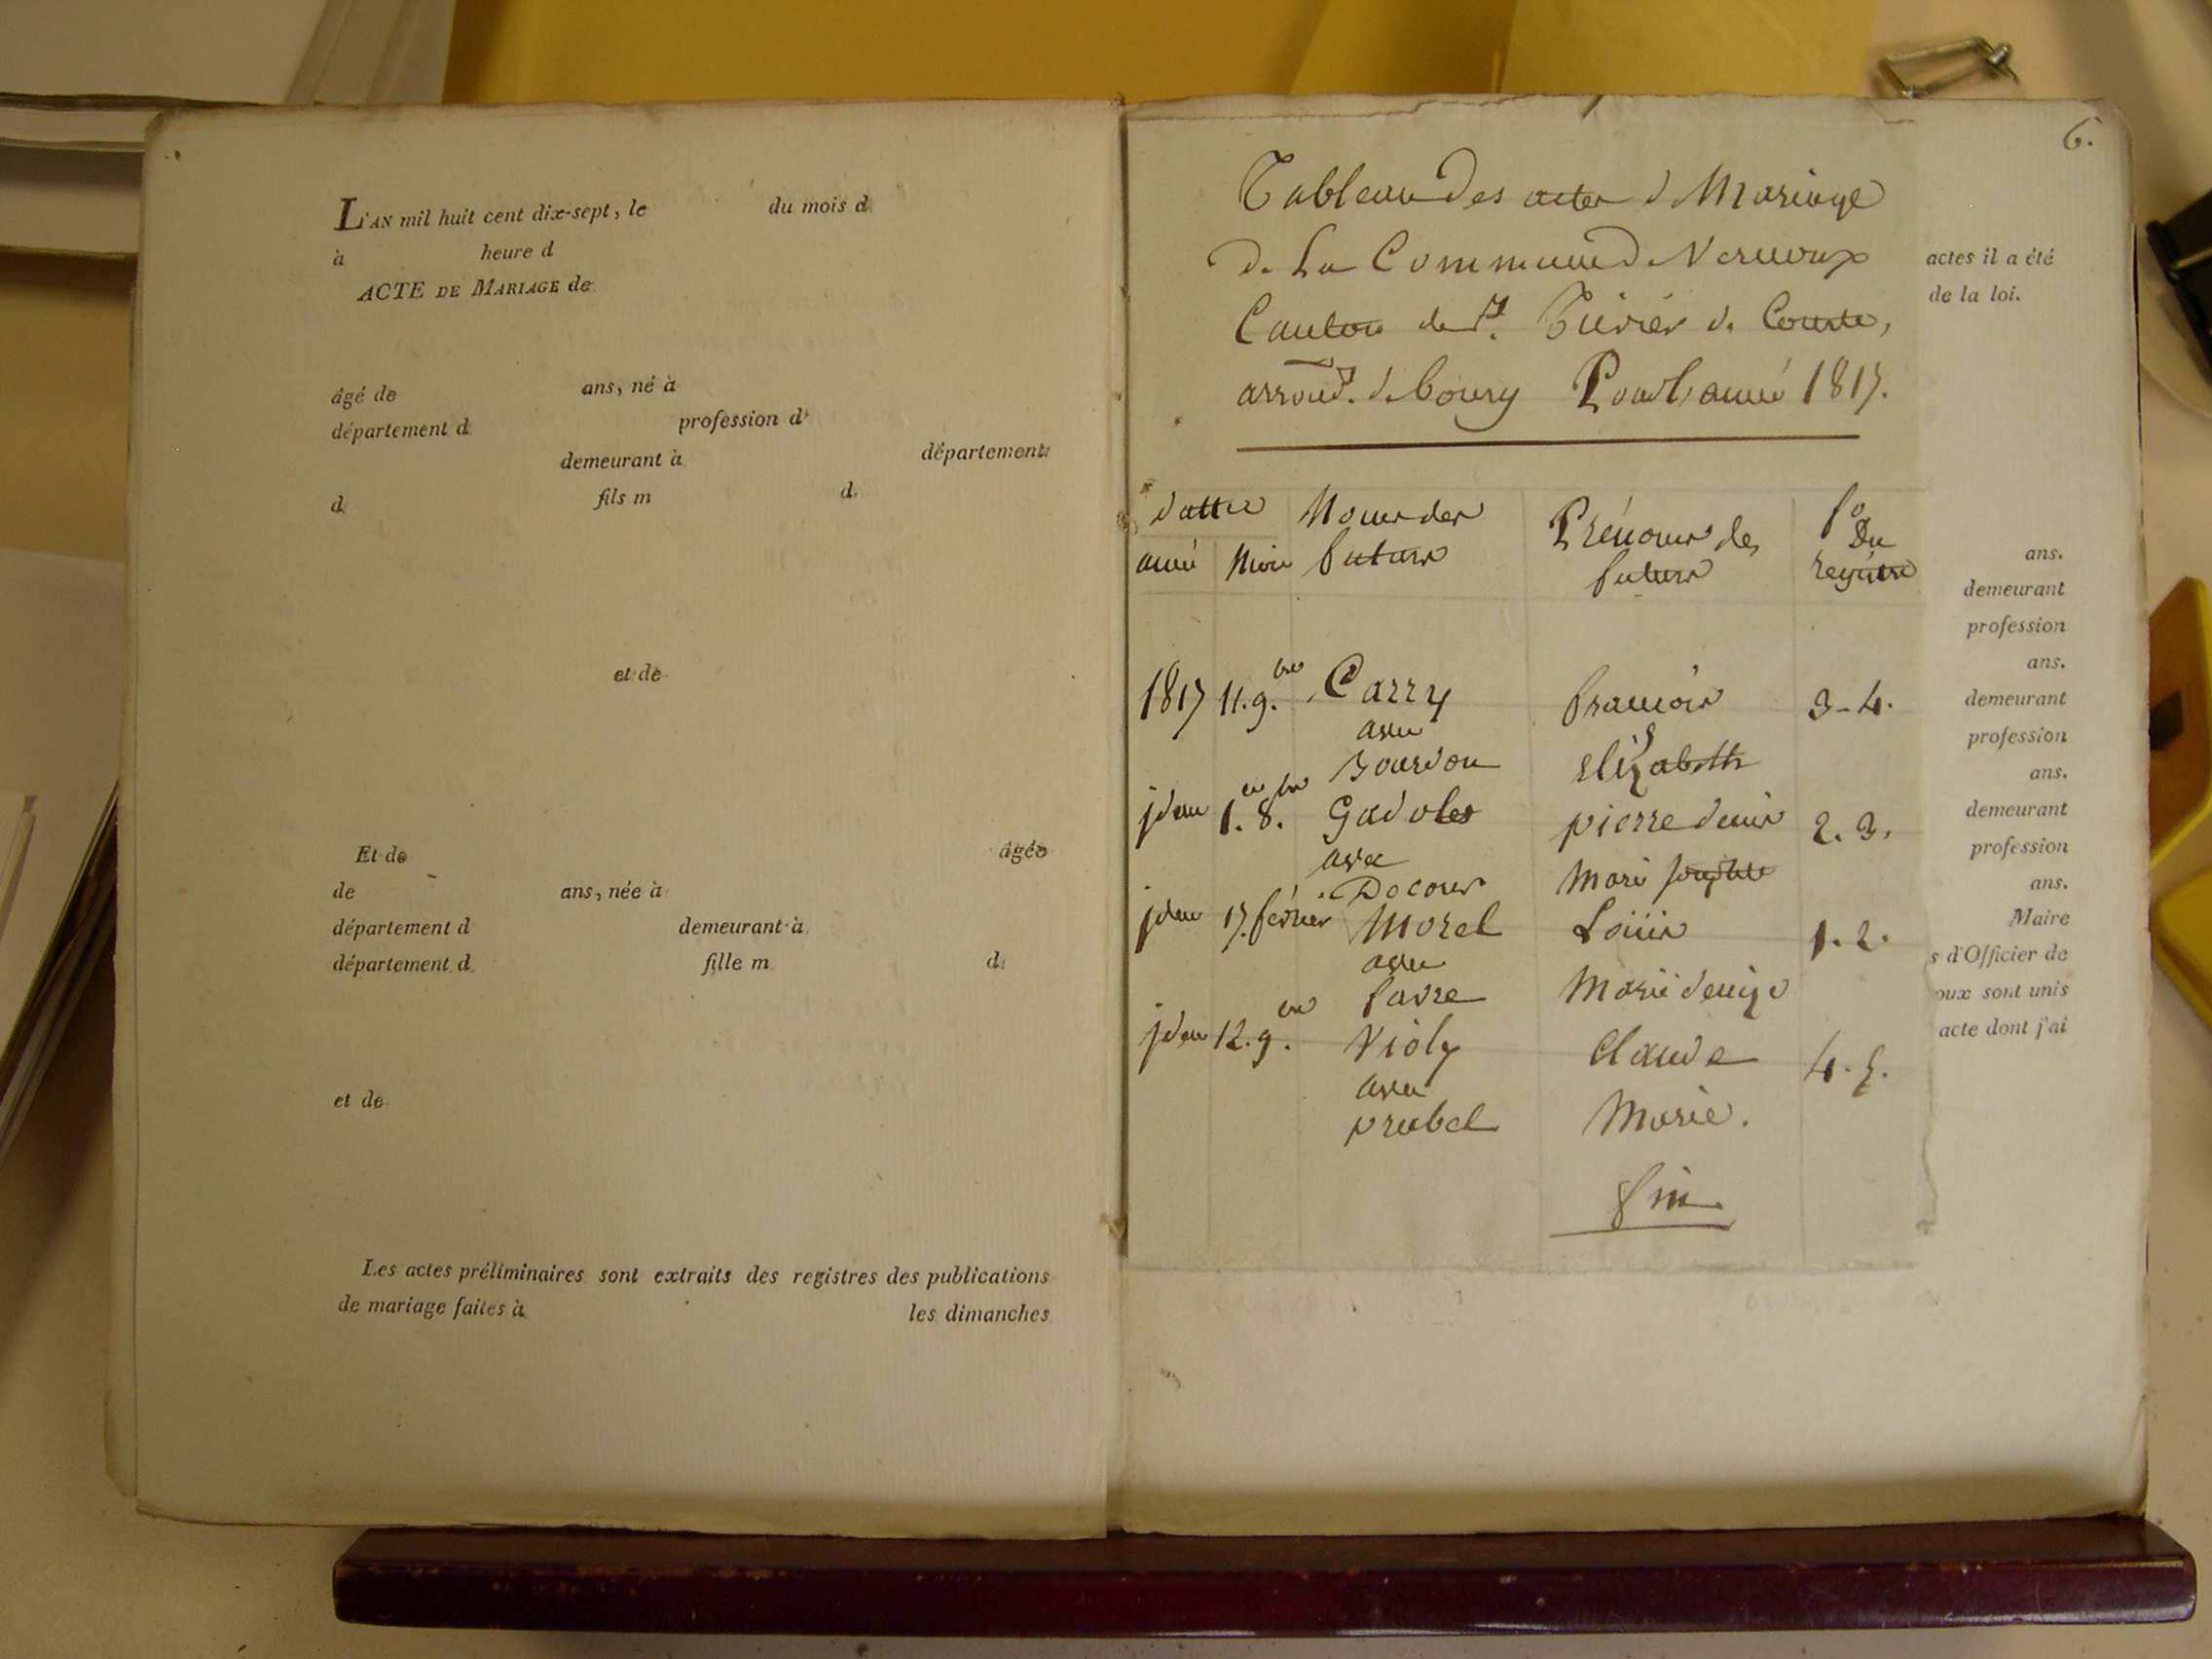 L'AN mil huit cent dix-sept, le du mois d
à heure d
ACTE DE MARIAGE de
âgé de ans, né à
département d profession d
demeurant à département
d fils m d
et de
Et de âgée
de ans, née à
département d demeurant à
département d fille m d
et de
Les actes préliminaires sont extraits des registres des publications
de mariage faites à les dimanches
6.
Tableau des actes d Mariage
de La Commune de Vernoux
Canton de St. Trivier de Courte,
arrond. de bourg Pour l'année 1817.
dattes Noms des Prénoms des fo Du
année Mois futurs futurs registre
1817 11. 9.bre Carry francois 3-4.
avec
Bourdon Elizabeth
jdem 1.er 8.bre Gadolet pierre denis 2. 3.
avec
Docour Mari josephte
jdem 17. février Morel Louis 1. 2.
avec
favre Marie denize
jdem 12. 9.bre Violy Claude 4. 5.
avec
prubel Marie.
fin
actes il a été
de la loi.
ans.
demeurant
profession
ans.
demeurant
profession
ans.
demeurant
profession
ans.
Maire
s d'Officier de
oux sont unis
acte dont j'ai